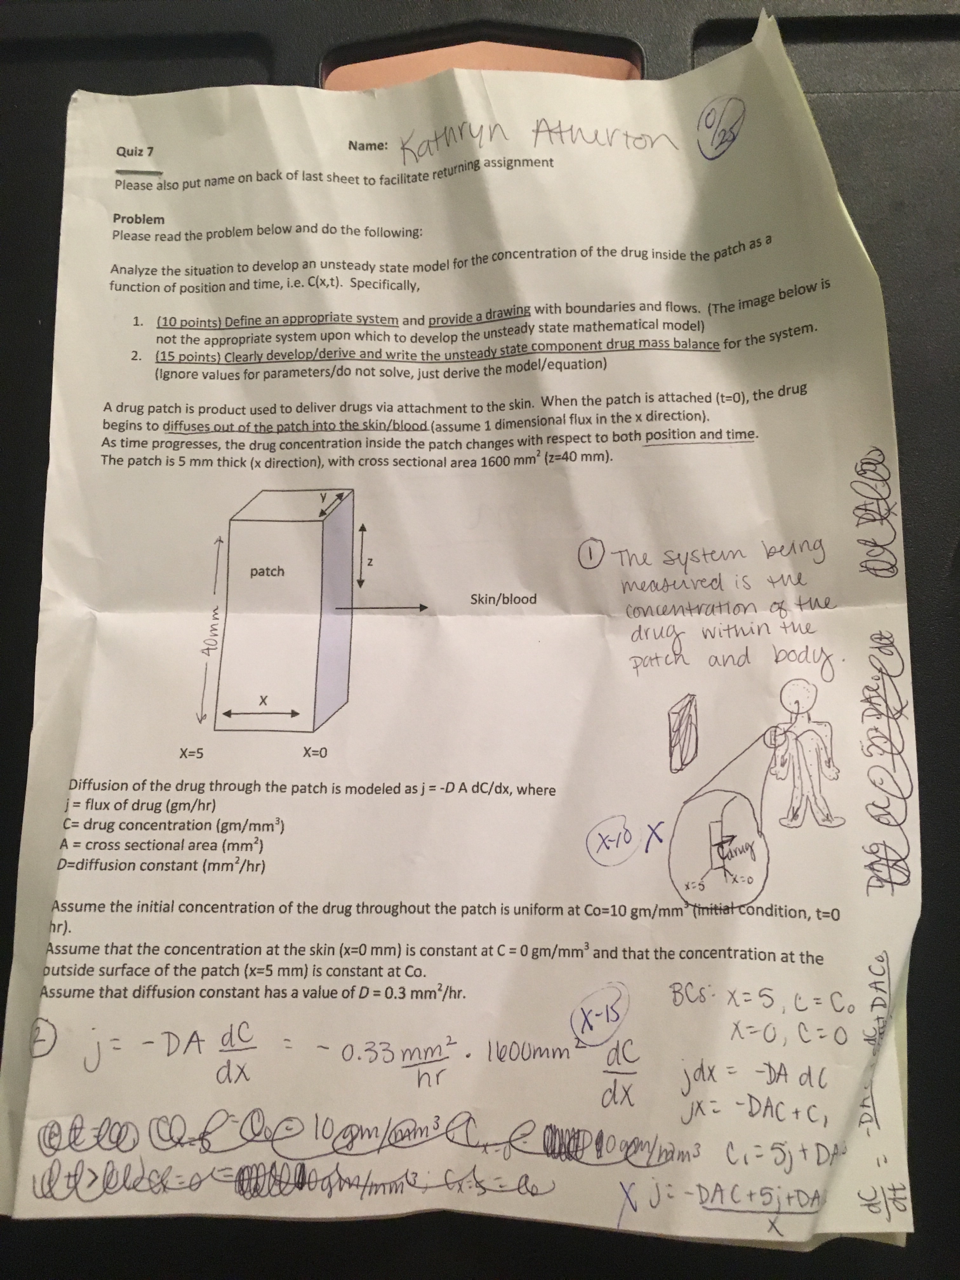 Quiz 7
Name: Kathryn Atherton
0/25
Please also put name on back of last sheet to facilitate returning assignment
Problem
Please read the problem below and do the following:
Analyze the situation to develop an unsteady state model for the concentration of the drug inside the patch as a
function of position and time, i.e. C(x,t). Specifically,
1. (10 points) Define an appropriate system and provide a drawing with boundaries and flows. (The image below is
not the appropriate system upon which to develop the unsteady state mathematical model)
2. (15 points) Clearly develop/derive and write the unsteady state component drug mass balance for the system.
(Ignore values for parameters/do not solve, just derive the model/equation)
A drug patch is product used to deliver drugs via attachment to the skin. When the patch is attached (t=0), the drug
begins to diffuses out of the patch into the skin/blood (assume 1 dimensional flux in the x direction).
As time progresses, the drug concentration inside the patch changes with respect to both position and time.
The patch is 5 mm thick (x direction), with cross sectional area 1600 mm² (z=40 mm).
y
z
patch
Skin/blood
40mm
X
X=5
X=0
① The system being
measured is the
concentration of the
drug within the
patch and body.
drug
x=5
x=0
X-10 X
Diffusion of the drug through the patch is modeled as j = -D A dC/dx, where
j = flux of drug (gm/hr)
C= drug concentration (gm/mm³)
A = cross sectional area (mm²)
D=diffusion constant (mm²/hr)
Assume the initial concentration of the drug throughout the patch is uniform at Co=10 gm/mm³ (initial condition, t=0
hr).
Assume that the concentration at the skin (x=0 mm) is constant at C = 0 gm/mm³ and that the concentration at the
outside surface of the patch (x=5 mm) is constant at Co.
Assume that diffusion constant has a value of D = 0.3 mm²/hr.
X-15
② j = -DA dC/dx = -0.33 mm²/hr · 1600mm² dC/dx
BCs: x=5, C=C₀
x=0, C=0
jdx = -DA dC
jx = -DAC + C₁
C₁ = 5j + DA
X j = -DAC+5j+DA
X